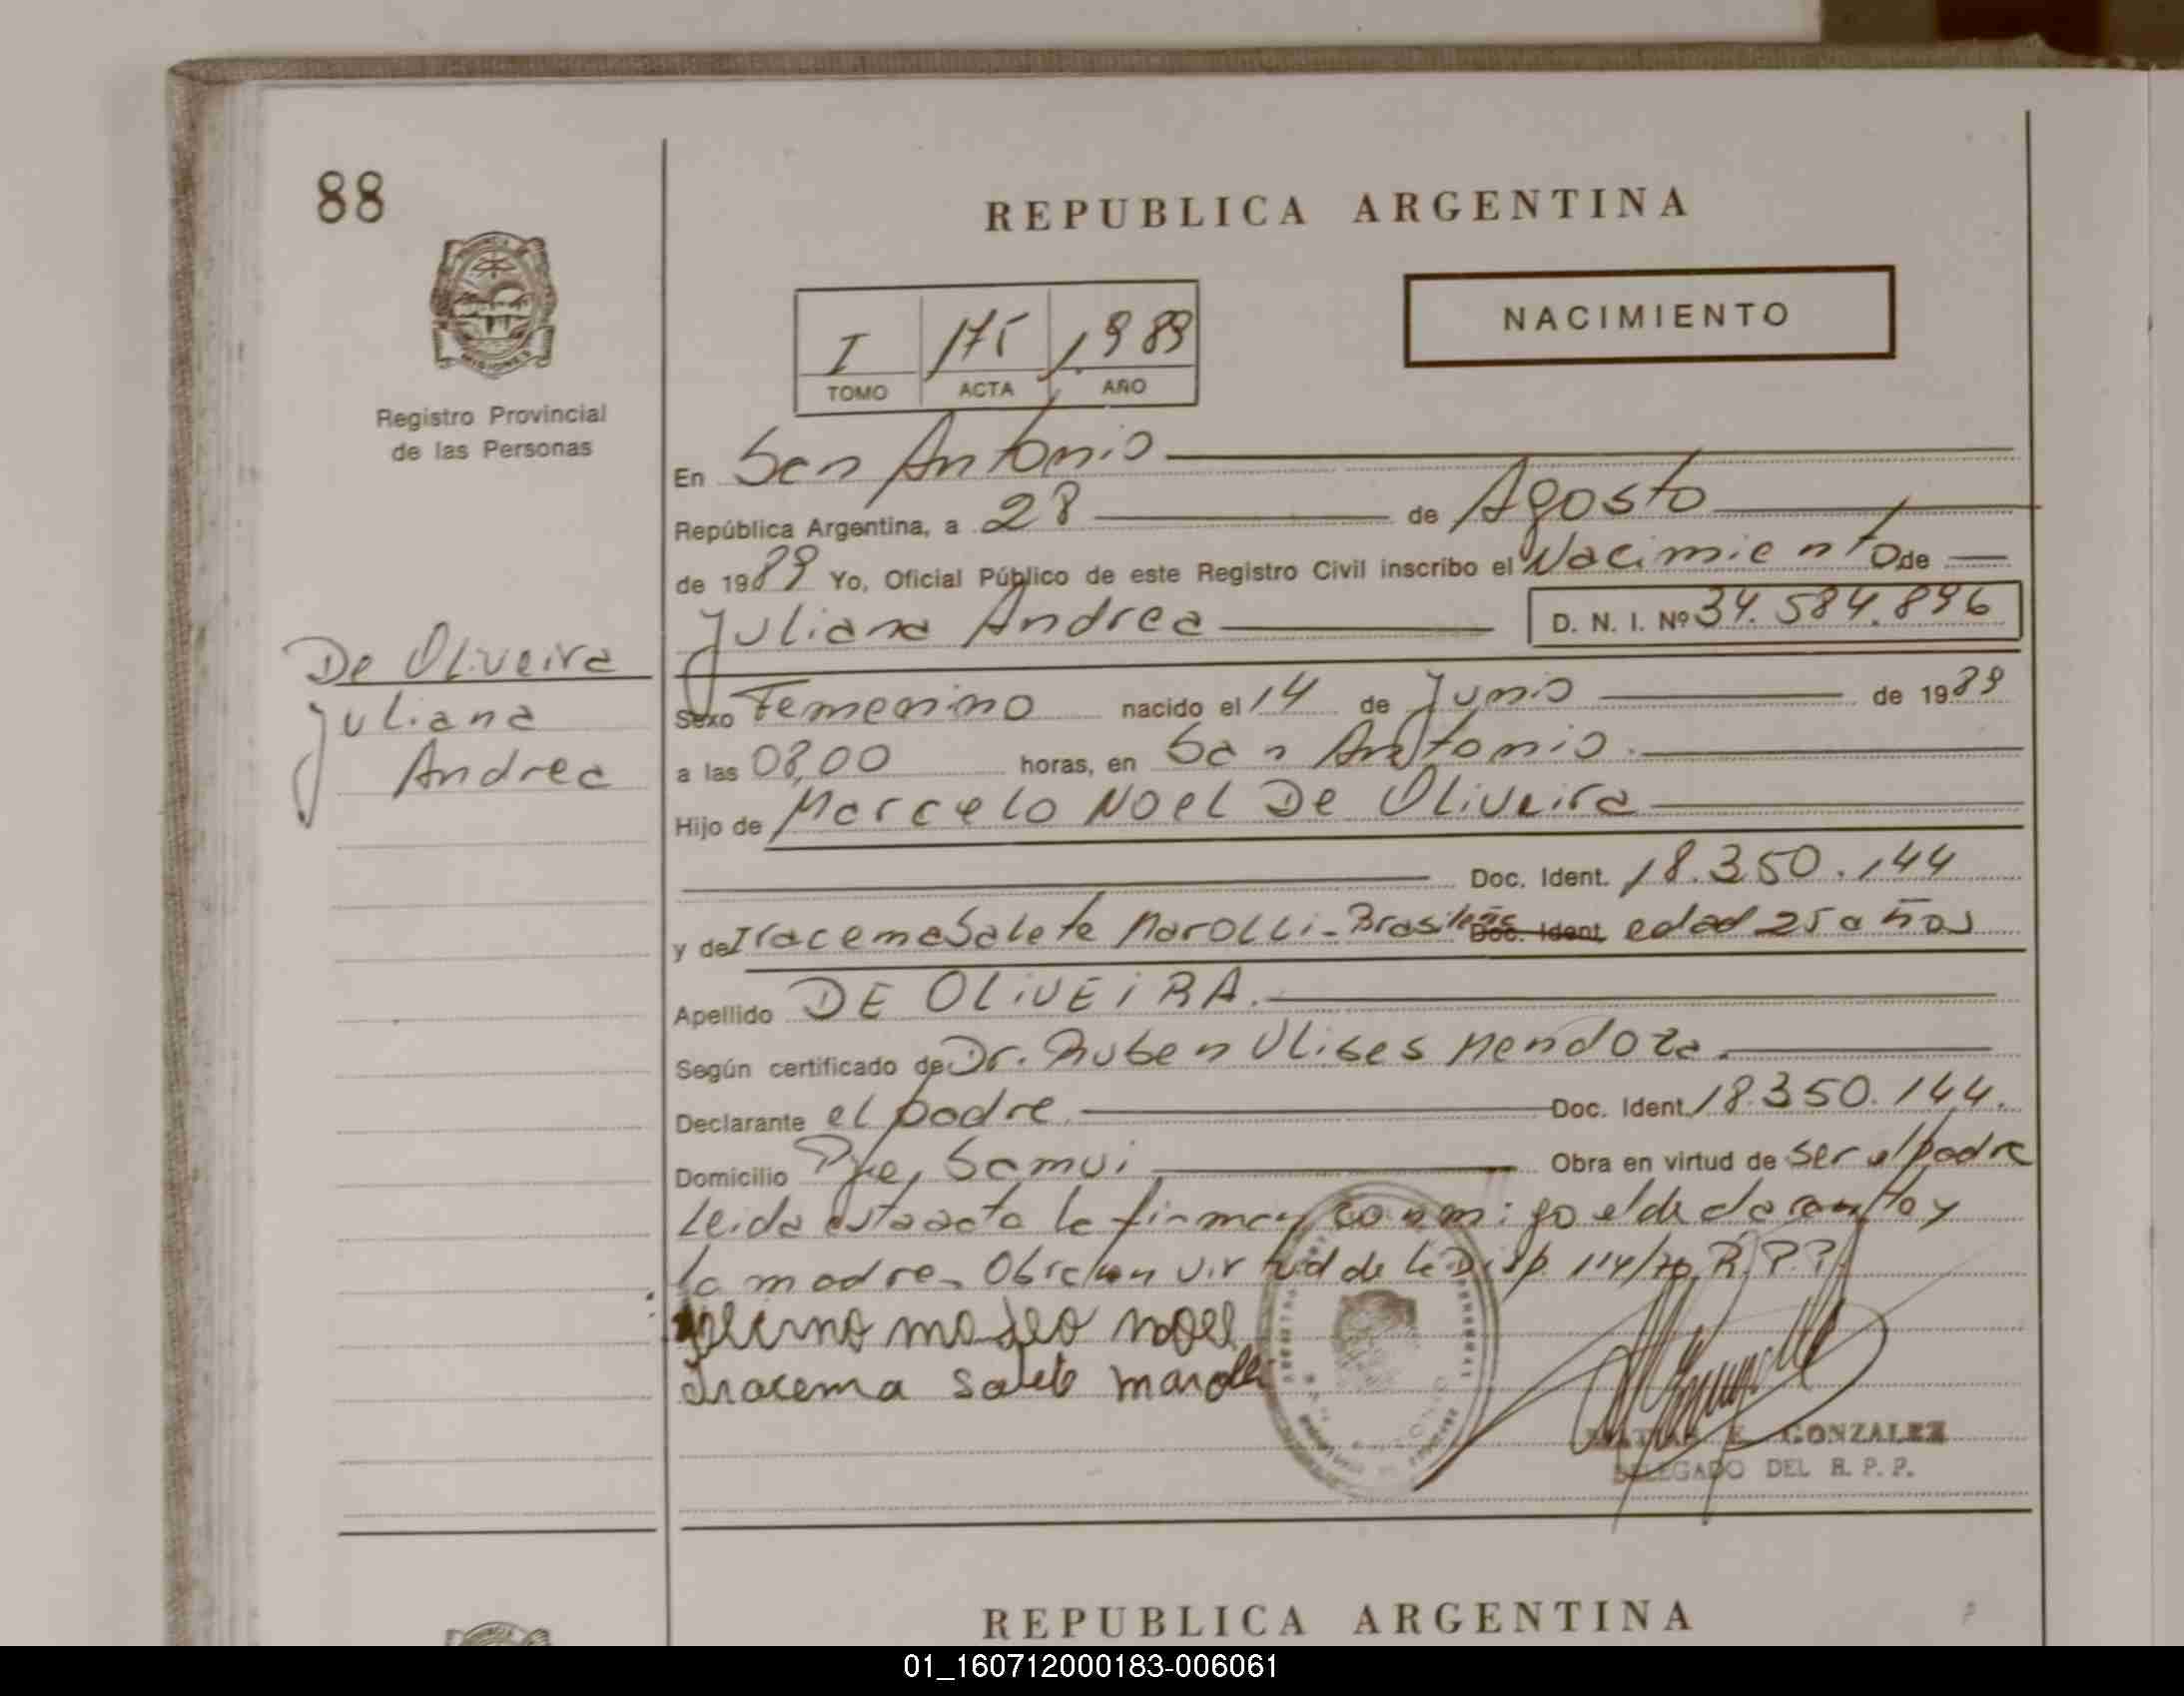 88
REPUBLICA ARGENTINA
NACIMIENTO
I 175 1989
TOMO ACTA AÑO
MISIONES
Registro Provincial
de las Personas
En San Antonio
República Argentina, a 28 de Agosto
de 1989 Yo, Oficial Público de este Registro Civil inscribo el Nacimiento de
Juliana Andrea D. N. I. Nº 34.584.896
De Oliveira
Juliana
Andrea
Sexo Femenino nacido el 14 de Junio de 1989
a las 08,00 horas, en San Antonio.
Hijo de Marcelo Noel De Oliveira
Doc. Ident. 18.350.144
y de Iracema Salete Marolli - Brasileña Doc. Ident. edad 25 años
Apellido DE OLIVEIRA.
Según certificado de Dr. Ruben Ulises Mendoza.
Declarante el padre Doc. Ident. 18.350.144.
Domicilio Pje, Samui Obra en virtud de ser el padre
Leida esta acta la firman conmigo el declarante y
la madre. Obra en virtud de la Disp. 114/70, R.P.P.
noel
Iracema Salete marolli
GONZALEZ
DELEGADO DEL R. P. P.
REPUBLICA ARGENTINA
01_160712000183-006061